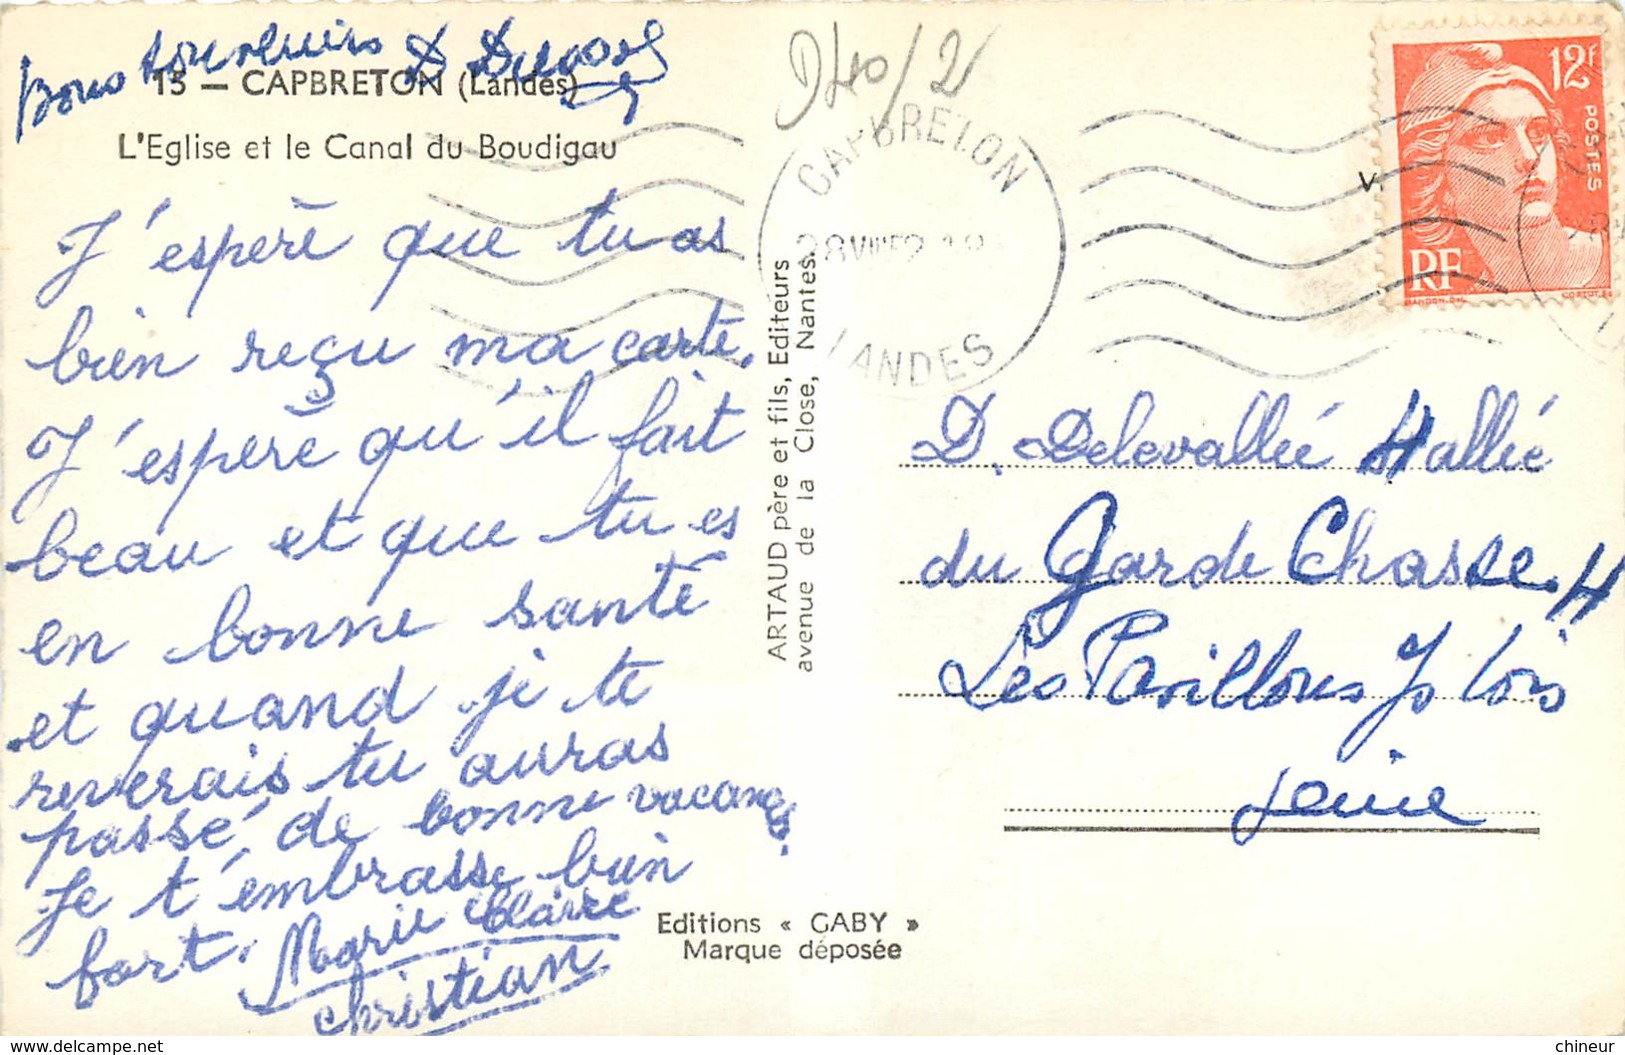 Bons souvenirs D
15 — CAPBRETON (Landes)
L'Eglise et le Canal du Boudigau
J'espère que tu as
bien reçu ma carte.
J'espère qu'il fait
beau et que tu es
en bonne santé
et quand je te
reverais tu auras
passé de bonne vacances.
Je t'embrasse bien
fort. Marie Claire
Christian
ARTAUD père et fils, Editeurs
avenue de la Close, Nantes.
Editions « GABY »
Marque déposée
CAPBRETON
LANDES
12F
POSTES
RF
D. Delevallée Hallée
du Garde Chasse
Les Pavillons s/s bois
Seine
chineur
www.delcampe.net